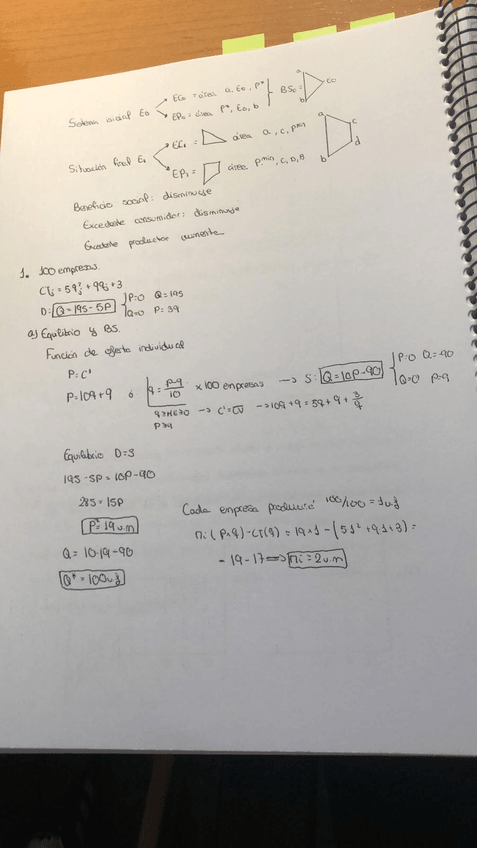 Sistema inicial E0 EC0 = área a, E0, P* BS0 = a E0 b
EP0 = área P*, E0, b
Situación final E1 EC1 = área a, c, pmin a c d b
EP1 = área Pmin, C, D, B
Beneficio social: disminuye
Excedente consumidor: disminuye
Excedente productor aumenta
1. 100 empresas.
CTj = 5q²j + 9qj + 3
D: Q = 195 - 5P P=0 Q=195
Q=0 P=39
a) Equilibrio y BS.
Función de oferta individual
P = C'
P = 10q + 9 ó q = P-9/10 × 100 empresas → S: Q = 10P - 90 P=0 Q=-90
Q=0 P=9
→ C' = CV → 10q + 9 = 5q + 9 + 3/q
P≥9
Equilibrio D=S
195 - 5P = 10P - 90
285 = 15P
P* = 19 u.m
Q = 10·19 - 90
Q* = 100 u.f
Cada empresa producirá 100/100 = 1 u.f
πi (P×q) - CT(q) = 19×1 - (5·1² + 9·1 + 3) =
= 19 - 17 ⟹ πi = 2 u.m